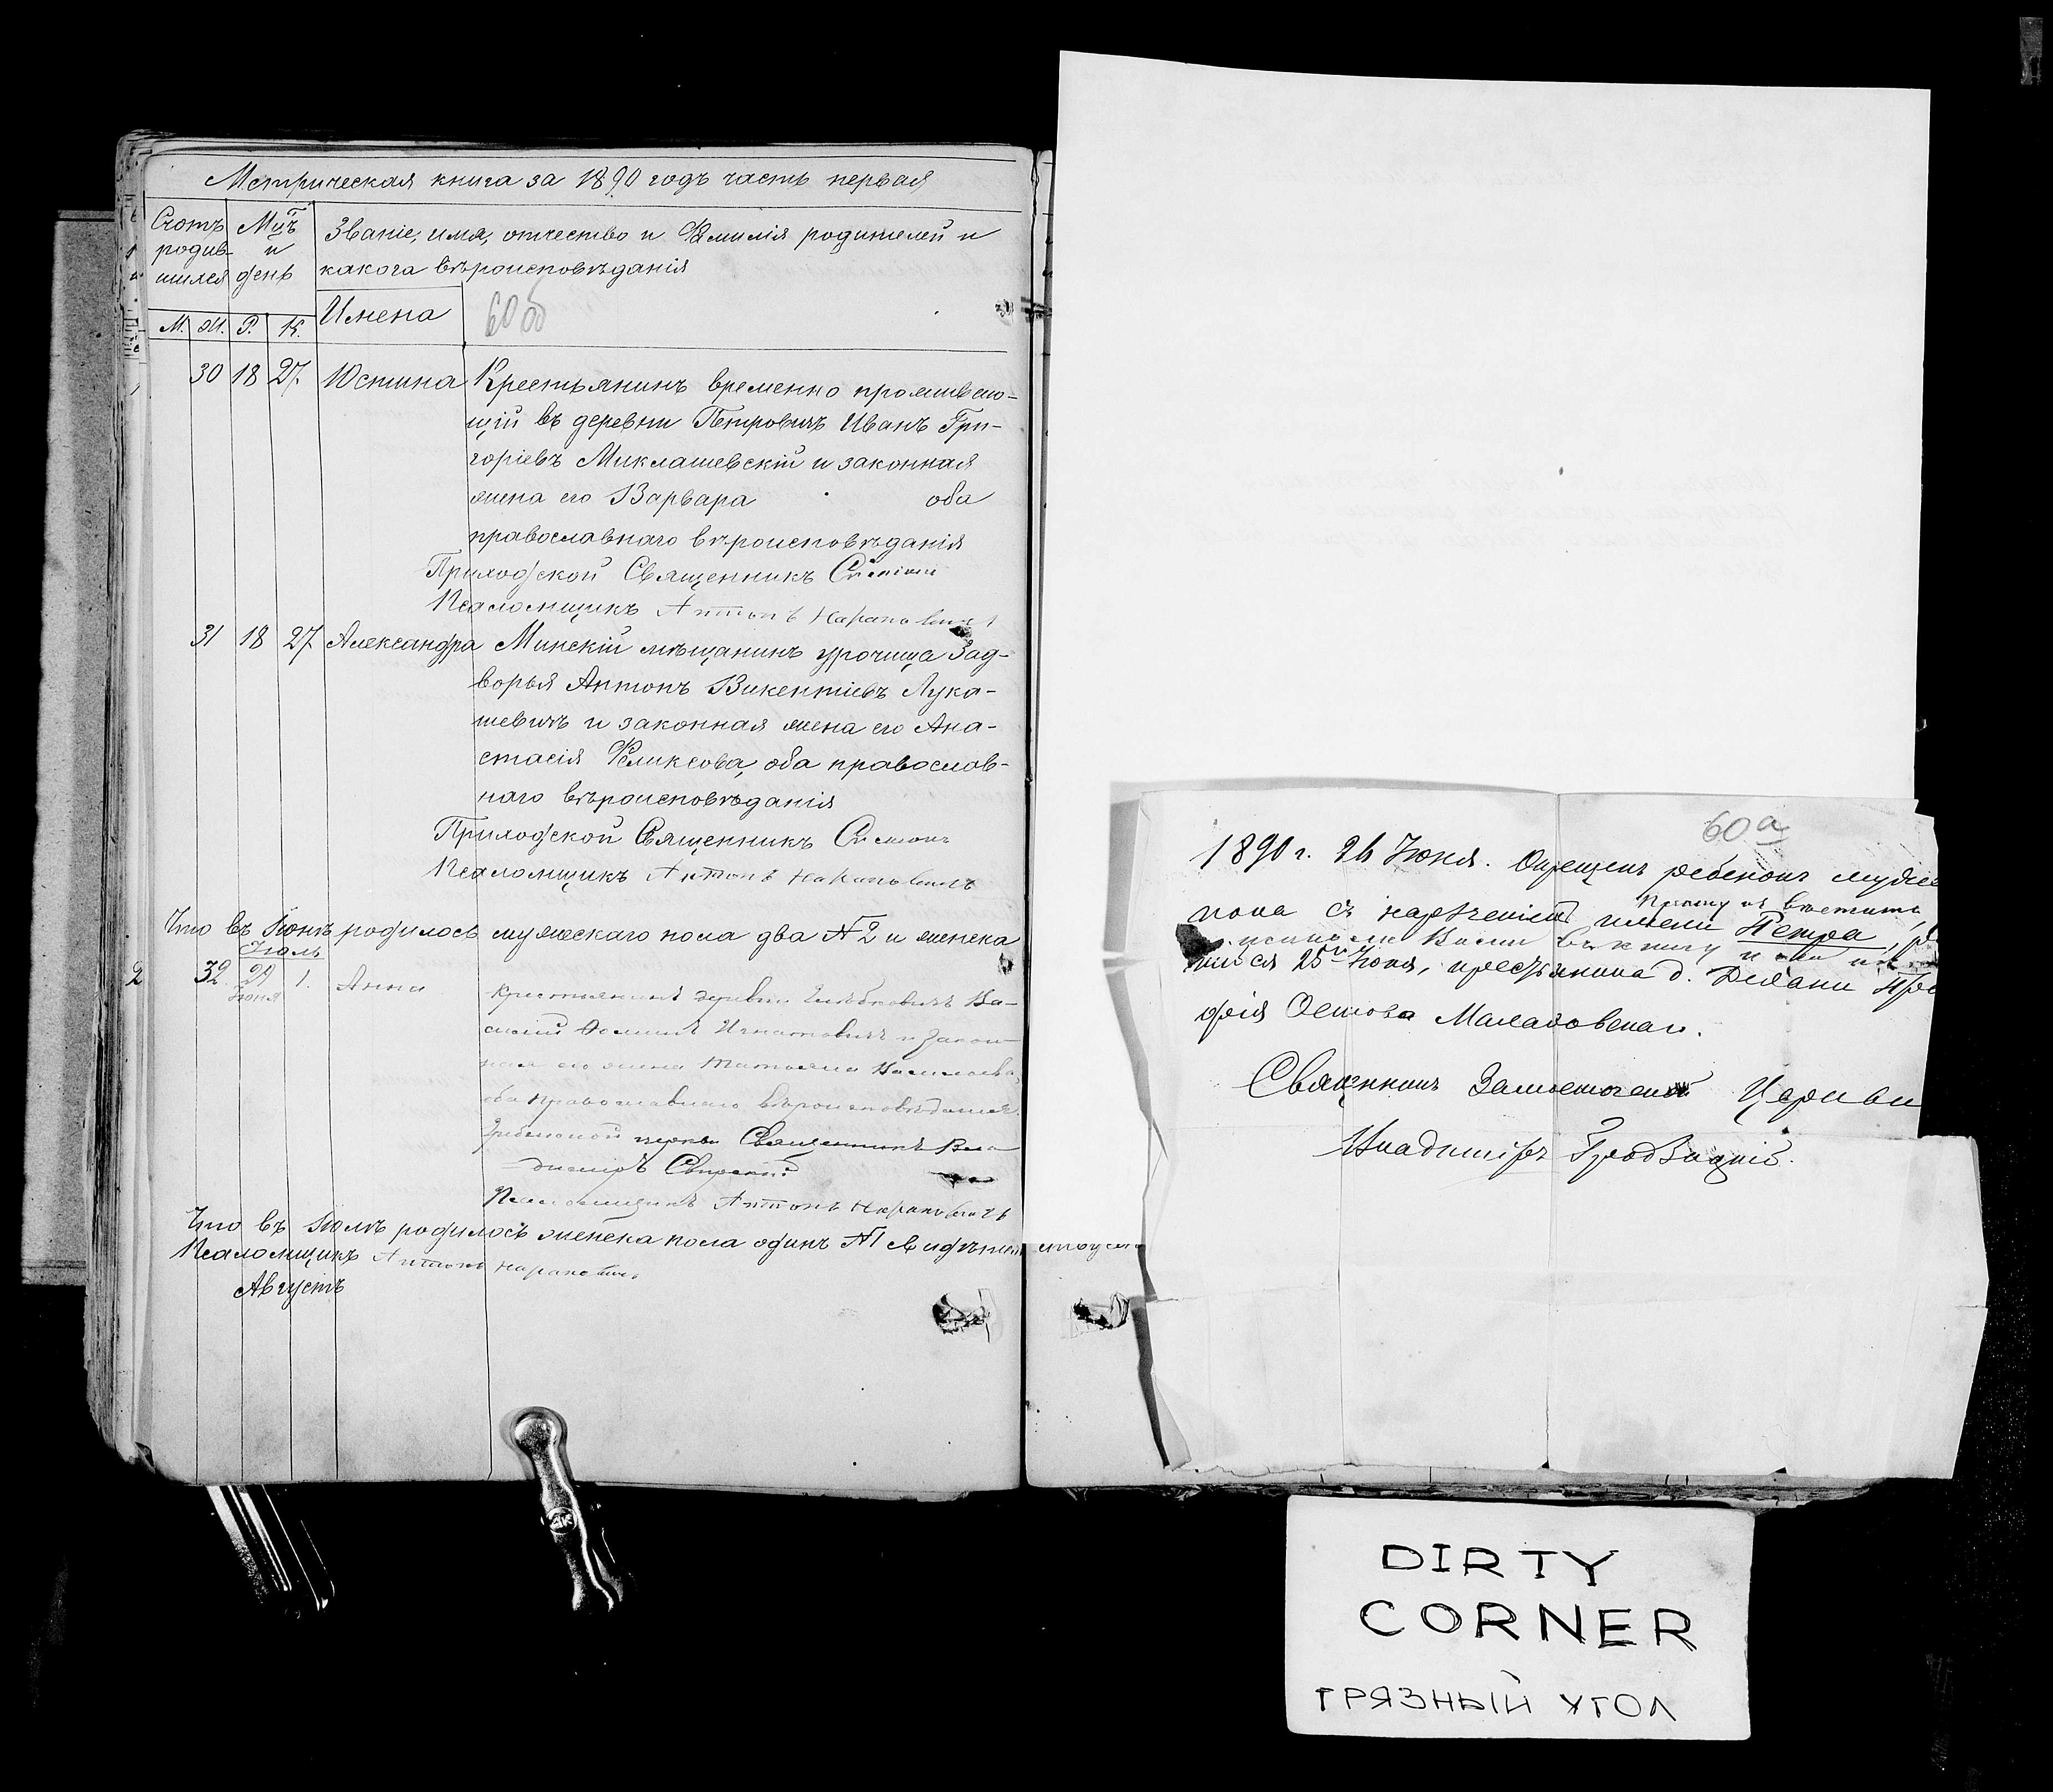 Метрическая книга за 1890 годъ часть первая
Счотъ родив- шихся
Мцъ и день
Званіе, имя, отчество и Фамилія родителей и
какога вѣроисповѣданія
М. Ж. Р. К.
Имена
60 об
30 18 27. Юстина Крестьянинъ временно проживаю-
щій въ деревни Петровичъ Иванъ Гри-
горіевъ Миклашевскій и законная
жена его Варвара оба
православнаго вѣроисповѣданія
Приходской Священникъ
Псаломщикъ Антонъ Нарановичъ
31 18 27 Александра Минскій мѣщанинъ урочища Зад-
ворья Антонъ Викентіевъ Лука-
шевичъ и законная жена его Ана-
стасія Феликсова, оба православ-
наго вѣроисповѣданія
Приходской Священникъ
Псаломщикъ Антонъ Нарановичъ
Что въ Іюнѣ родилось мужескаго пола два №2 и женска
Іюль
2 32. 29 Іюня 1. Анна Крестьянинъ деревни Ва-
силій Фоминъ Игнатовичъ и закон-
ная его жена Татьяна Василіева,
оба православнаго вѣроисповѣданія
церкви Священникъ Вла-
диміръ Свирскій
Псаломщикъ Антонъ Нарановичъ
Что въ Іюлѣ родилось женска пола одинъ №1
Псаломщикъ Антонъ Нарановичъ
Августъ
60а
1890 г. 26 Іюня. Окрещенъ ребенокъ муже
Прошу их вместить
пола съ нареченіемъ имени Петра,
въ книгу
шися 25 Іюня, крестьянина д. Деляни
фія Осипова
Священникъ Замосточской Церкви
Владиміръ Гродзицкій.
DIRTY
CORNER
ГРЯЗНЫЙ УГОЛ